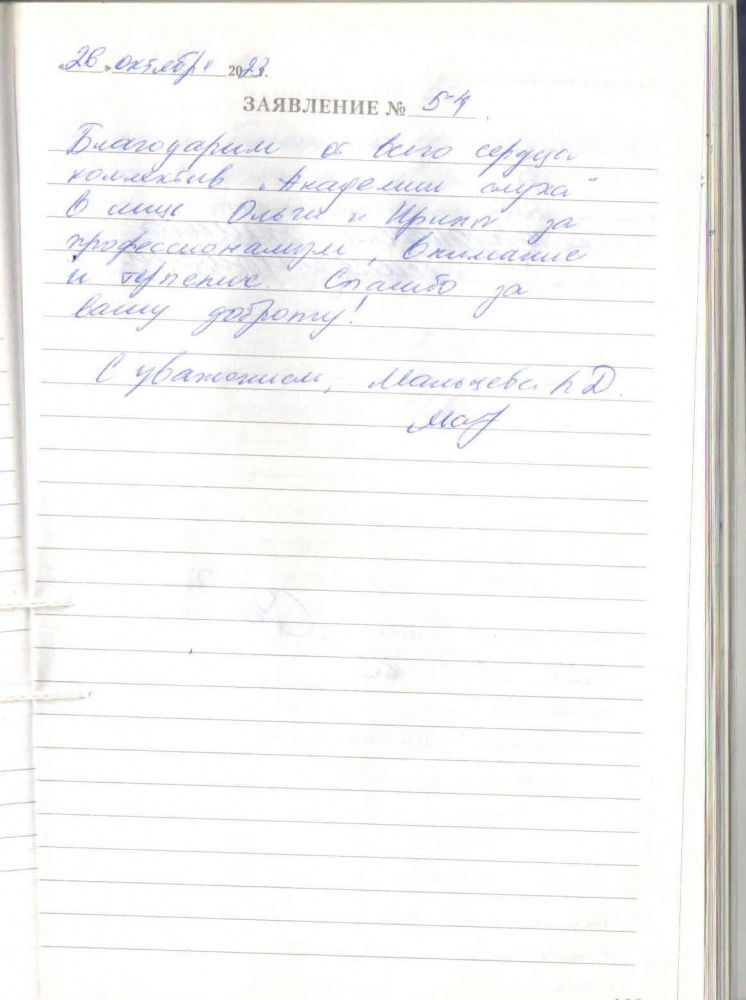 «26» октября 2023 г.
ЗАЯВЛЕНИЕ № 54
Благодарим от всего сердца
коллектив „Академии слуха"
в лице Ольги и Ирины за
профессионализм, внимание
и терпение. Спасибо за
вашу доброту!
С уважением, Мальцева Д.